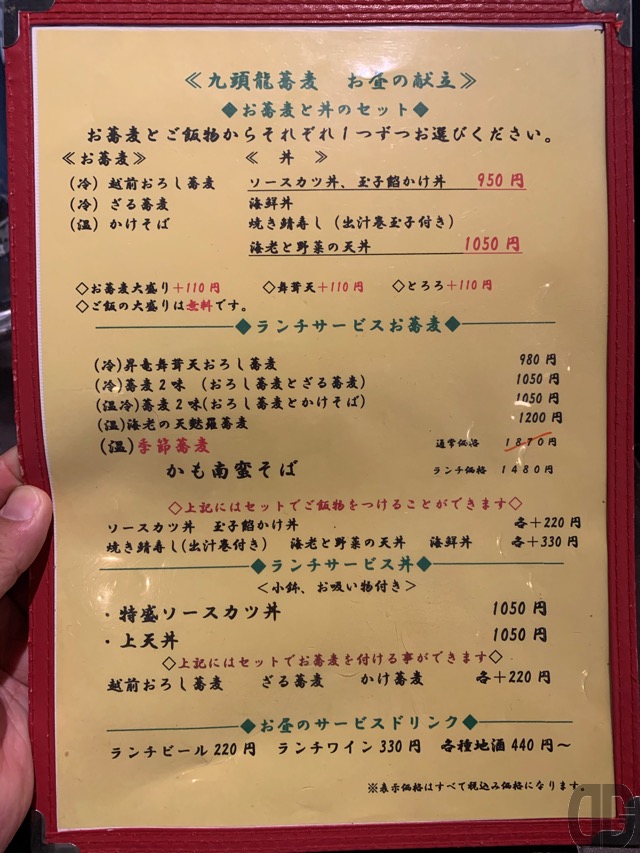 ≪九頭龍蕎麦　お昼の献立≫
◆お蕎麦と丼のセット◆
お蕎麦とご飯物からそれぞれ1つずつお選びください。
≪お蕎麦≫　≪　丼　≫
(冷) 越前おろし蕎麦　ソースカツ丼、玉子餡かけ丼　950 円
(冷) ざる蕎麦　海鮮丼
(温) かけそば　焼き鯖寿し（出汁巻玉子付き）
海老と野菜の天丼　1050 円
◇お蕎麦大盛り＋110 円　◇舞茸天＋110 円　◇とろろ＋110 円
◇ご飯の大盛りは無料です。
◆ランチサービスお蕎麦◆
(冷)昇竜舞茸天おろし蕎麦　980 円
(冷)蕎麦２味　(おろし蕎麦とざる蕎麦)　1050 円
(温冷)蕎麦２味(おろし蕎麦とかけそば)　1050 円
(温)海老の天麩羅蕎麦　1200 円
(温)季節蕎麦　通常価格　１８７０円
かも南蛮そば　ランチ価格　１４８０円
◇上記にはセットでご飯物をつけることができます◇
ソースカツ丼　玉子餡かけ丼　各＋220 円
焼き鯖寿し(出汁巻付き)　海老と野菜の天丼　海鮮丼　各＋330 円
◆ランチサービス丼◆
＜小鉢、お吸い物付き＞
・特盛ソースカツ丼　1050 円
・上天丼　1050 円
◇上記にはセットでお蕎麦を付ける事ができます◇
越前おろし蕎麦　ざる蕎麦　かけ蕎麦　各＋220 円
◆お昼のサービスドリンク◆
ランチビール 220 円　ランチワイン 330 円　各種地酒 440 円～
※表示価格はすべて税込み価格になります。